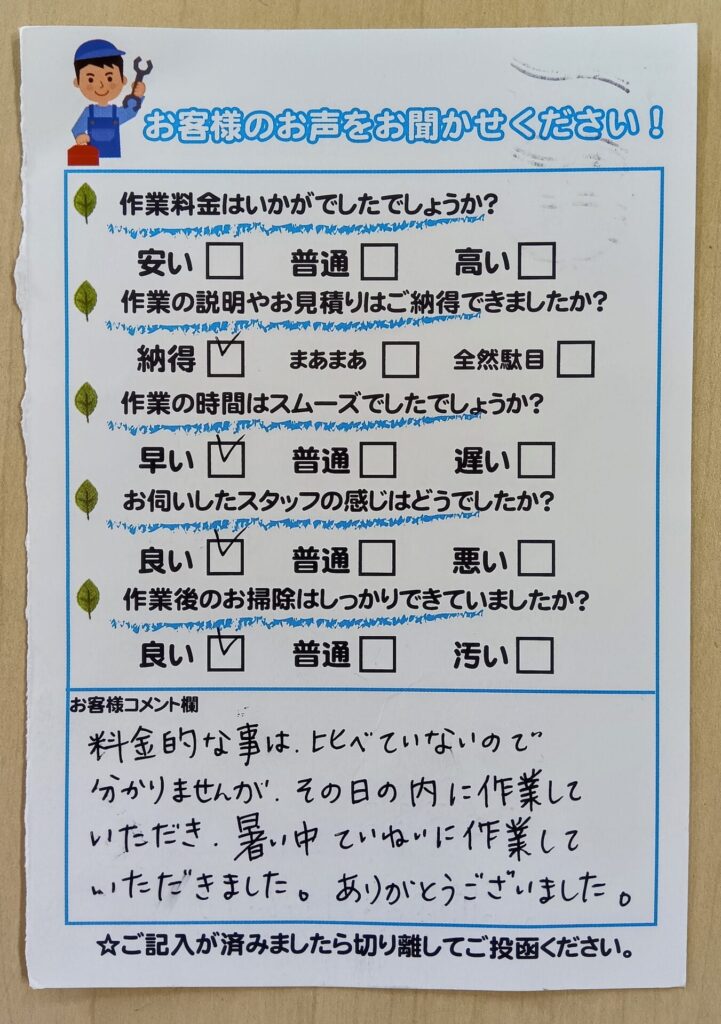 お客様のお声をお聞かせください！
作業料金はいかがでしたでしょうか？
安い□ 普通□ 高い□
作業の説明やお見積りはご納得できましたか？
納得☑ まあまあ□ 全然駄目□
作業の時間はスムーズでしたでしょうか？
早い☑ 普通□ 遅い□
お伺いしたスタッフの感じはどうでしたか？
良い☑ 普通□ 悪い□
作業後のお掃除はしっかりできていましたか？
良い☑ 普通□ 汚い□
お客様コメント欄
料金的な事は、比べていないので
分かりませんが、その日の内に作業して
いただき、暑い中ていねいに作業して
いただきました。ありがとうございました。
☆ご記入が済みましたら切り離してご投函ください。